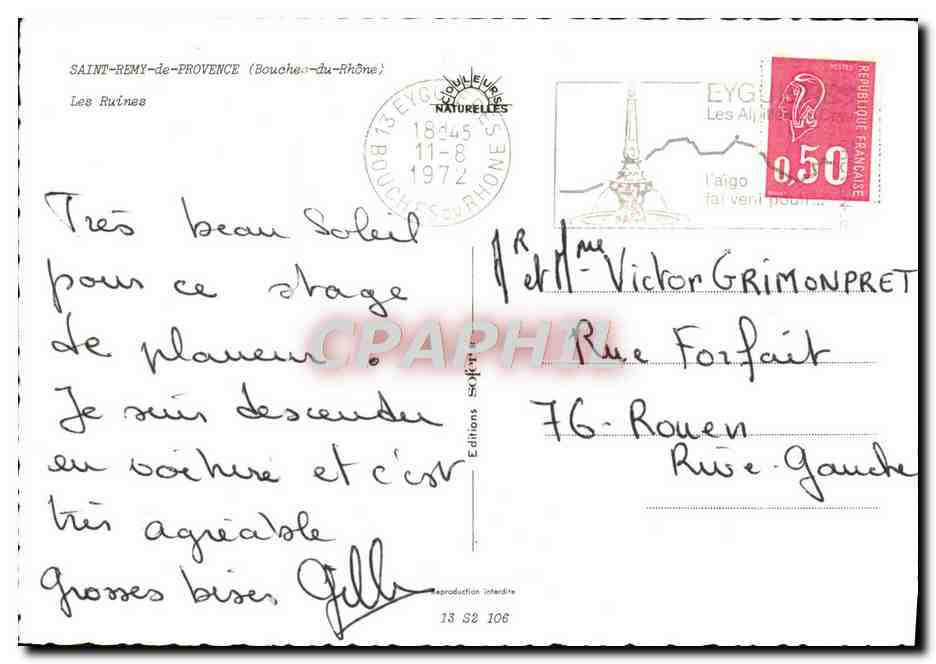 SAINT-REMY-de-PROVENCE (Bouches-du-Rhône)
Les Ruines
COULEURS
NATURELLES
13 EYGUIERES
18H45
11-8
1972
BOUCHES DU RHONE
EYGUIERES
Les Alpilles
l'aïgo
fai veni
POSTES
REPUBLIQUE FRANÇAISE
0,50
Très beau Soleil
pour ce stage
de planeur.
Je suis descendu
en voiture et c'est
très agréable
Grosses bises Gilles
Mr et Mme Victor GRIMONPRET
Rue Forfait
76 - Rouen
Rive-Gauche
CPAPHIL
Editions sofer
Reproduction interdite
13 S2 106